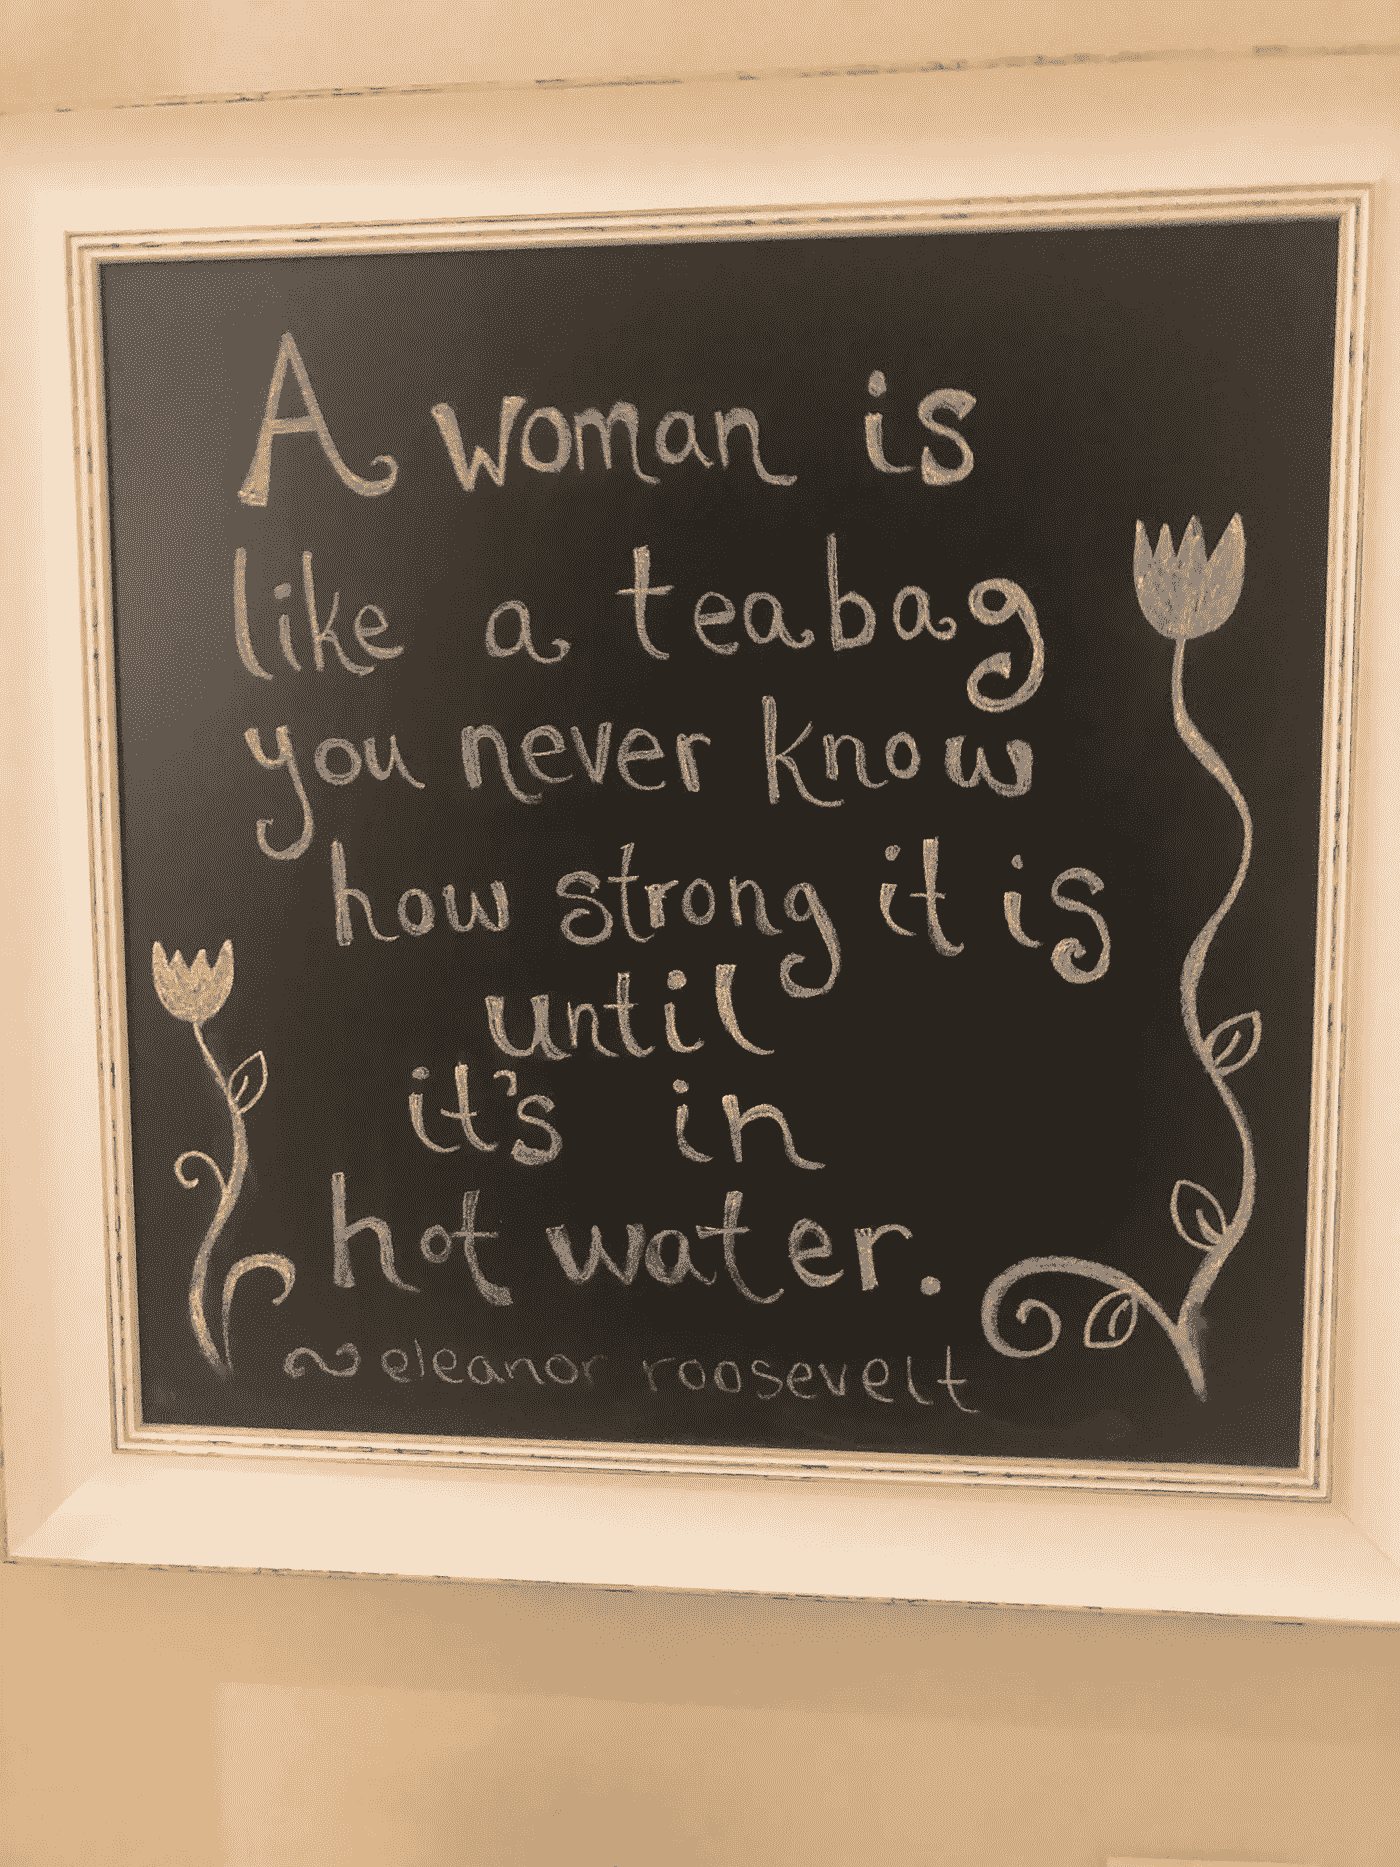 A woman is
like a teabag
you never know
how strong it is
until
it's in
hot water.
~ eleanor roosevelt